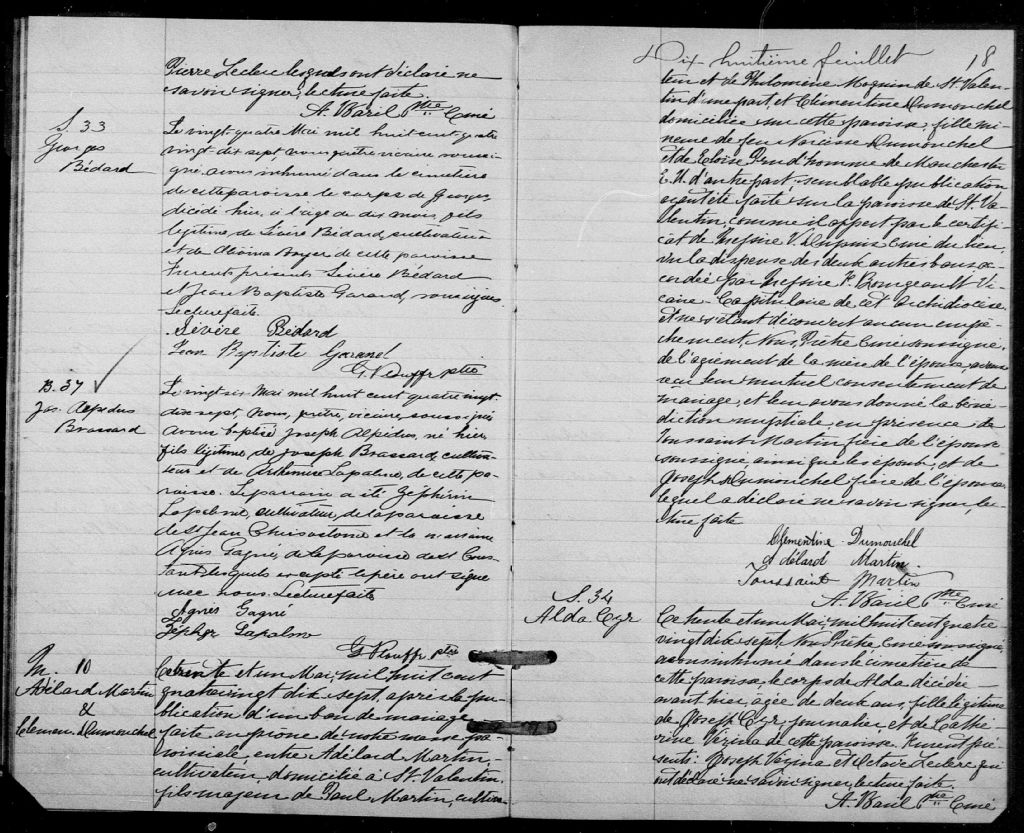 Pierre Leclerc lesquels ont déclaré ne
savoir signer, lecture faite.
A. Baril Ptre Curé
S. 33
Georges
Bédard
Le vingt-quatre Mai mil huit cent quatre
vingt-dix sept, nous prêtre vicaire soussi-
gné avons inhumé dans le cimetière
de cette paroisse le corps de Georges,
décédé hier, à l'âge de dix mois, fils
légitime de Sévère Bédard, cultivateur
et de Boyer de cette paroisse
Furent présents Sévère Bédard
et Jean Baptiste Garand, soussignés
Lecture faite.
Sévère Bédard
Jean Baptiste Garand
G. Plouffe ptre
B. 37
Jos. Alpédus
Brassard
Le vingt six Mai mil huit cent quatre vingt
dix sept, Nous, prêtre, vicaire, soussigné
avons baptisé Joseph Alpédus, né hier,
fils légitime de Joseph Brassard, cultiva-
teur et de Arthémise Lapalme, de cette pa-
roisse. Le parrain a été Zéphirin
Lapalme, cultivateur, de la paroisse
de St Jean Chrisostome et la marraine
Agnès Gagné, de la paroisse de St Cons-
tant lesquels excepté le père ont signé
avec nous. Lecture faite
Agnès Gagné
Zepher Lapalme
G. Plouffe ptre
M. 10
Adélard Martin
&
Clemen. Dumouchel
Ce trente et un Mai, mil huit cent
quatre vingt dix sept, après la pu-
blication d'un ban de mariage
faite au prône de notre messe pa-
roissiale, entre Adélard Martin,
cultivateur, domicilié à St. Valentin,
fils majeur de Paul Martin, cultiva-
Dix huitième feuillet 18
teur et de Philomène Moquin de St. Valen-
tin d'une part, et Clémentine Dumouchel
domiciliée en cette paroisse, fille mi-
neure de feu Narcisse Dumouchel
et de Eloise Prud'homme de Manchester
E. U. d'autre part, semblable publication
ayant été faite sur la paroisse de St. Va-
lentin, comme il appert par le certifi-
cat de Messire V. Dupuis Curé du lieu,
vu la dispense des deux autres bans ac-
cordée par Messire F. Bourgeault Vi-
caire-Capitulaire de cet archidiocèse
et ne s'étant découvert aucun empê-
chement, Nous, Prêtre Curé soussigné,
de l'agrément de la mère de l'épouse avons
reçu leur mutuel consentement de
mariage, et leur avons donné la béné-
diction nuptiale, en présence de
Toussaint Martin frère de l'époux
soussigné, ainsi que les époux, et de
Joseph Dumouchel frère de l'épouse
lequel a déclaré ne savoir signer, lec-
ture faite
Clementine Dumouchel
Adélard Martin
Toussaint Martin
A. Baril Ptre Curé
S. 34
Alda Cyr
Ce trente et un Mai, mil huit cent quatre
vingt dix sept, Nous Prêtre, Curé soussigné,
avons inhumé dans le cimetière de
cette paroisse, le corps de Alda décédée
avant hier, agée de deux ans, fille légitime
de Joseph Cyr, journalier et de Cathe-
rine Vézina de cette paroisse. Furent pré-
sents: Joseph Vézina et Octave Leclerc qui
ont déclaré ne savoir signer, lecture faite.
A. Baril Ptre Curé